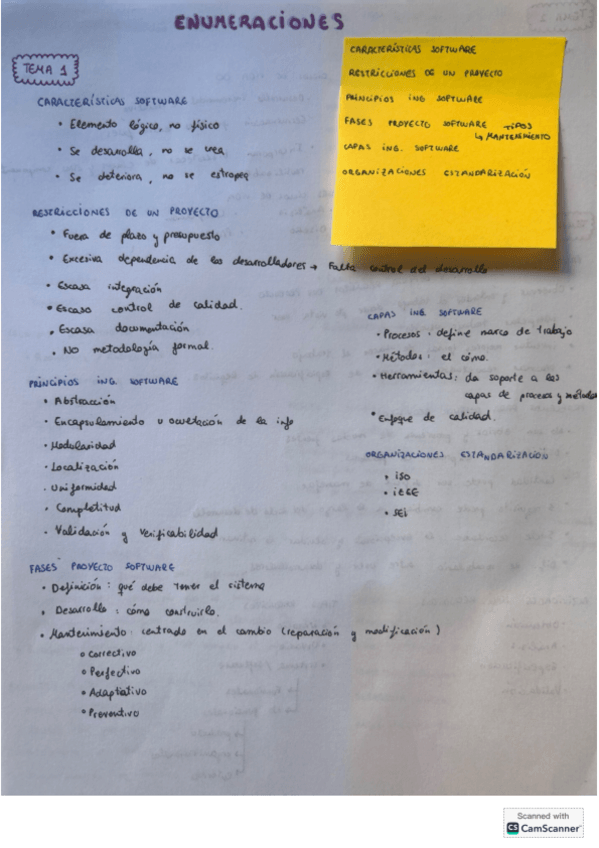 ENUMERACIONES
TEMA 1
CARACTERÍSTICAS SOFTWARE
• Elemento lógico, no físico
• Se desarrolla, no se crea
• Se deteriora, no se estropea
RESTRICCIONES DE UN PROYECTO
• Fuera de plazo y presupuesto
• Excesiva dependencia de los desarrolladores → Falta control del desarrollo
• Escasa integración
• Escaso control de calidad.
• Escasa documentación
• NO metodología formal.
PRINCIPIOS ING SOFTWARE
• Abstracción
• Encapsulamiento u ocultación de la info
• Modularidad
• Localización
• Uniformidad
• Completitud
• Validación y Verificabilidad
FASES PROYECTO SOFTWARE
• Definición: qué debe tener el sistema
• Desarrollo: cómo construirlo.
• Mantenimiento: centrado en el cambio (reparación y modificación)
o Correctivo
o Perfectivo
o Adaptativo
o Preventivo
CARACTERÍSTICAS SOFTWARE
RESTRICCIONES DE UN PROYECTO
PRINCIPIOS ING SOFTWARE
FASES PROYECTO SOFTWARE TIPOS
↳ MANTENIMIENTO
CAPAS ING. SOFTWARE
ORGANIZACIONES ESTANDARIZACIÓN
CAPAS ING. SOFTWARE
• Procesos: define marco de trabajo
• Métodos: el cómo.
• Herramientas: da soporte a las
capas de procesos y métodos
• Enfoque de calidad.
ORGANIZACIONES ESTANDARIZACIÓN
• ISO
• IEEE
• SEI
Scanned with
CS CamScanner